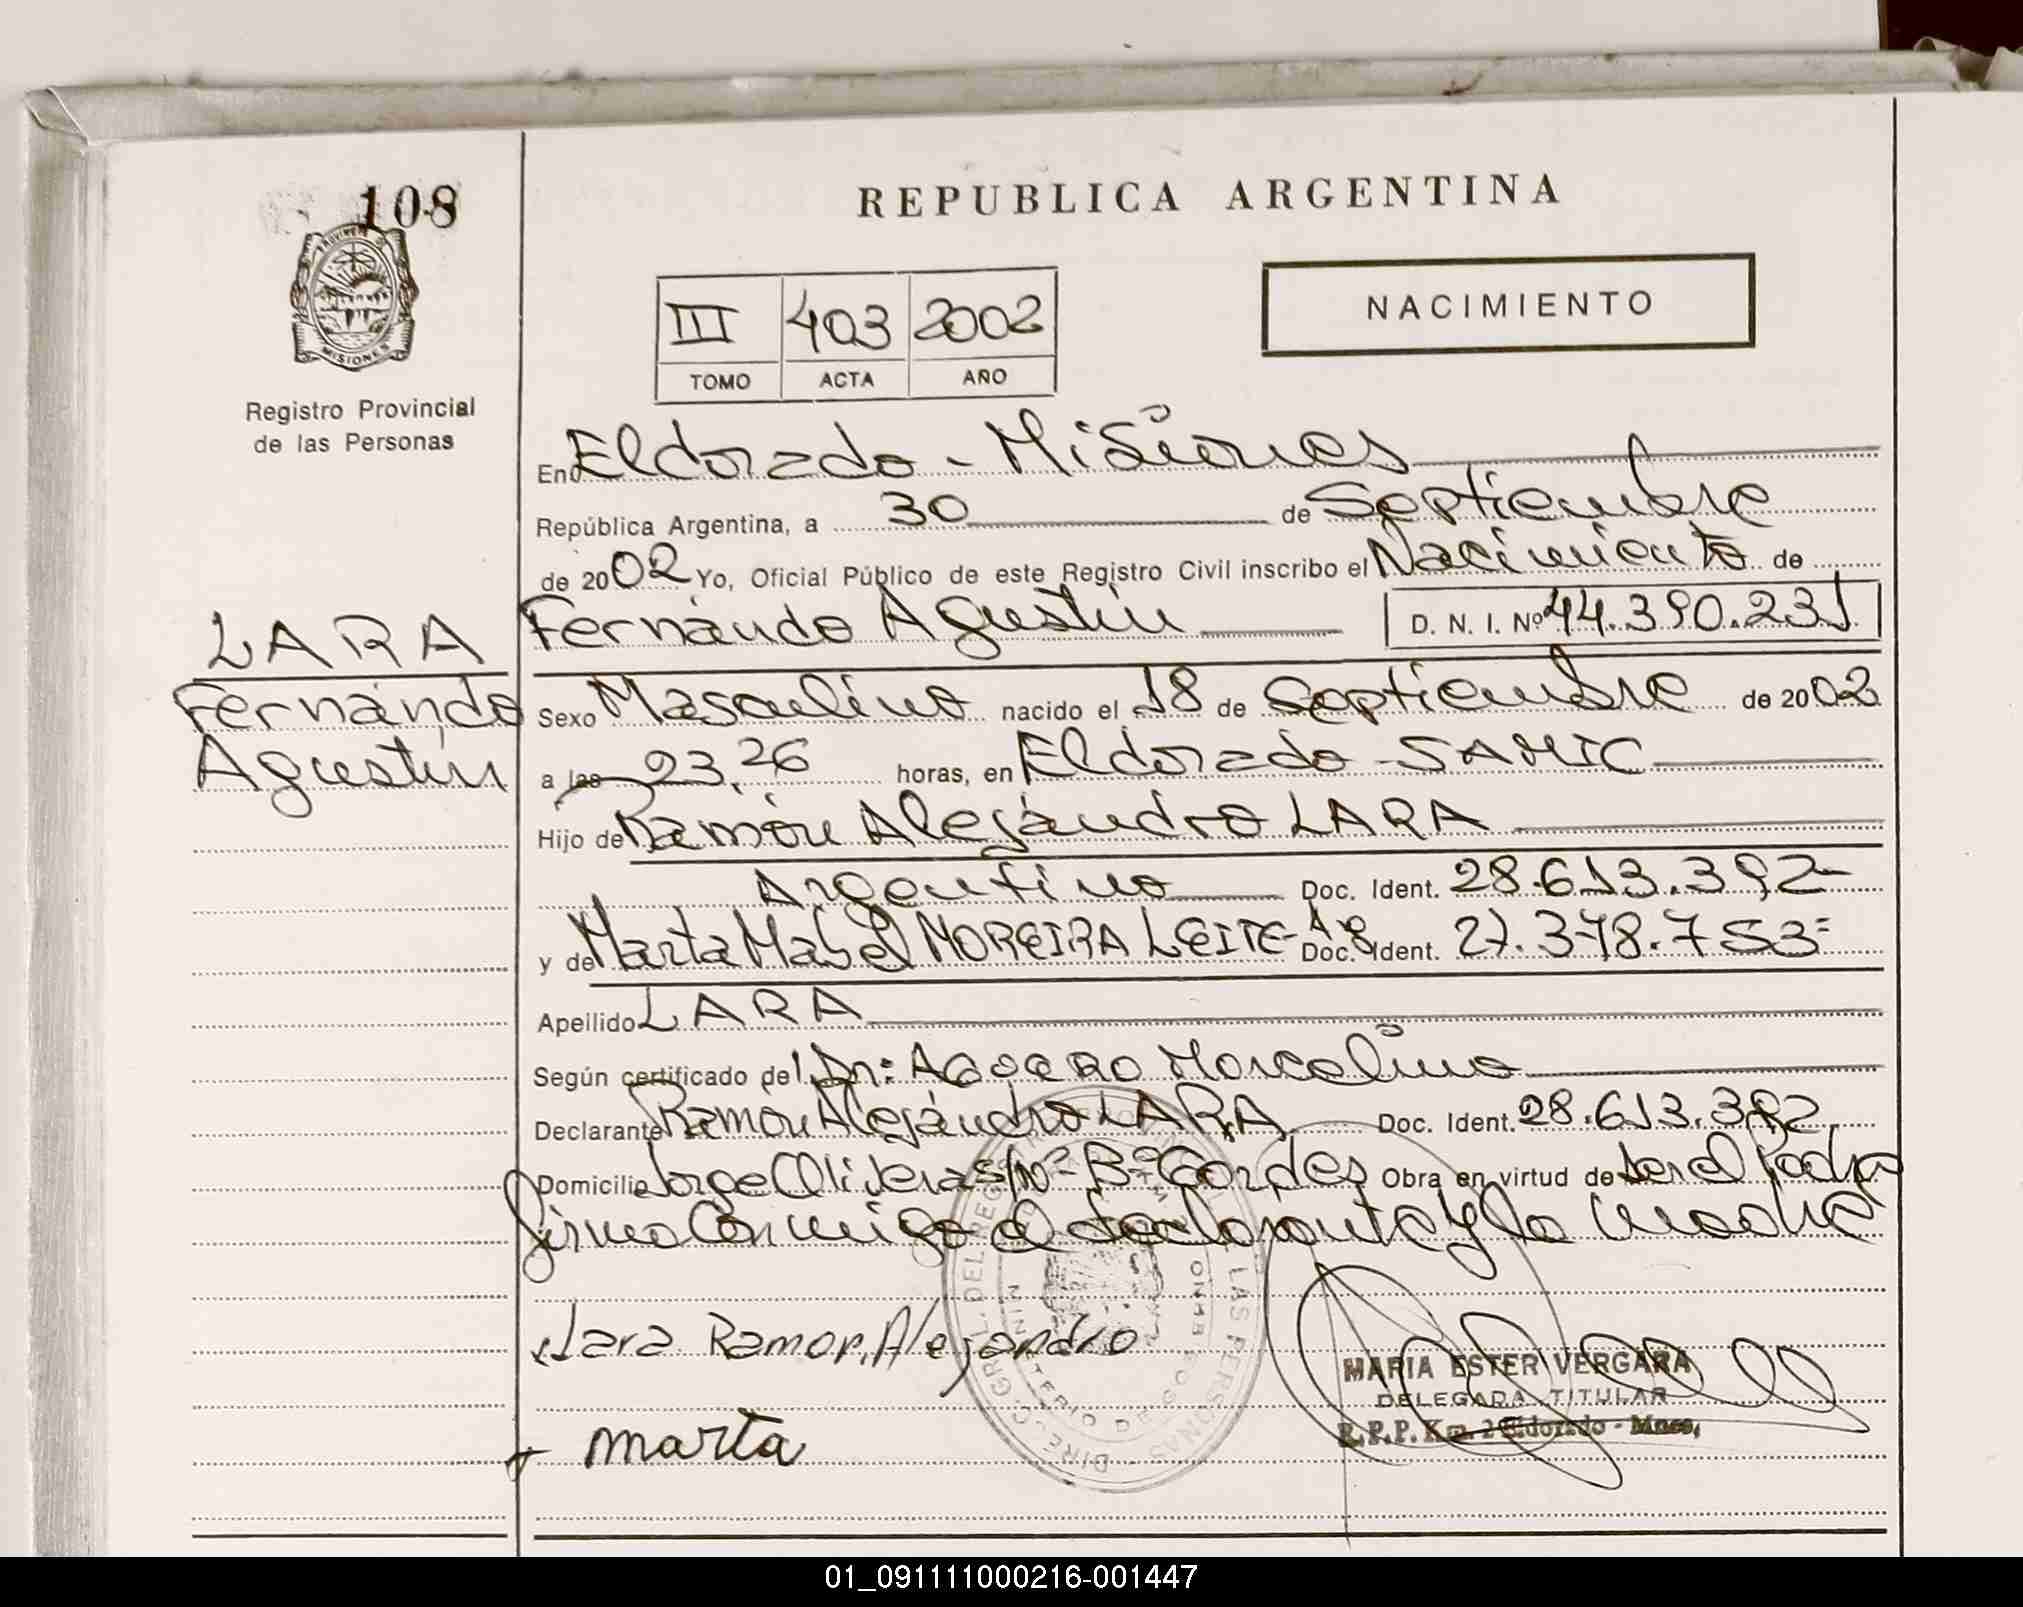 108
PROVINCIA DE
MISIONES
Registro Provincial
de las Personas
REPUBLICA ARGENTINA
III 403 2002
TOMO ACTA AÑO
NACIMIENTO
En Eldorado - Misiones
República Argentina, a 30 de Septiembre
de 2002 Yo, Oficial Público de este Registro Civil inscribo el Nacimiento de
Fernando Agustín D. N. I. Nº 44.390.231
LARA
Fernando
Agustín
Sexo Masculino nacido el 18 de Septiembre de 2002
a las 23,26 horas, en Eldorado - SAMIC
Hijo de Ramón Alejandro LARA
Argentino Doc. Ident. 28.613.392
y de Marta Mabel MOREIRA LEITE - Doc. Ident. 27.378.753
Apellido LARA
Según certificado del Dr: AGUERO Marcelino
Declarante Ramón Alejandro LARA Doc. Ident. 28.613.392
Domicilio Jorge Oliveras s/nº - Bº Cordes Obra en virtud de ser el Padre
firma Conmigo el declarante y la madre
Lara Ramon, Alejandro
marta
DIRECC. GRAL. DEL REGISTRO PROVINCIAL DE LAS PERSONAS
MARIA ESTER VERGARA
DELEGADA TITULAR
R.P.P. Km. 2 Eldorado - Mnes,
01_091111000216-001447